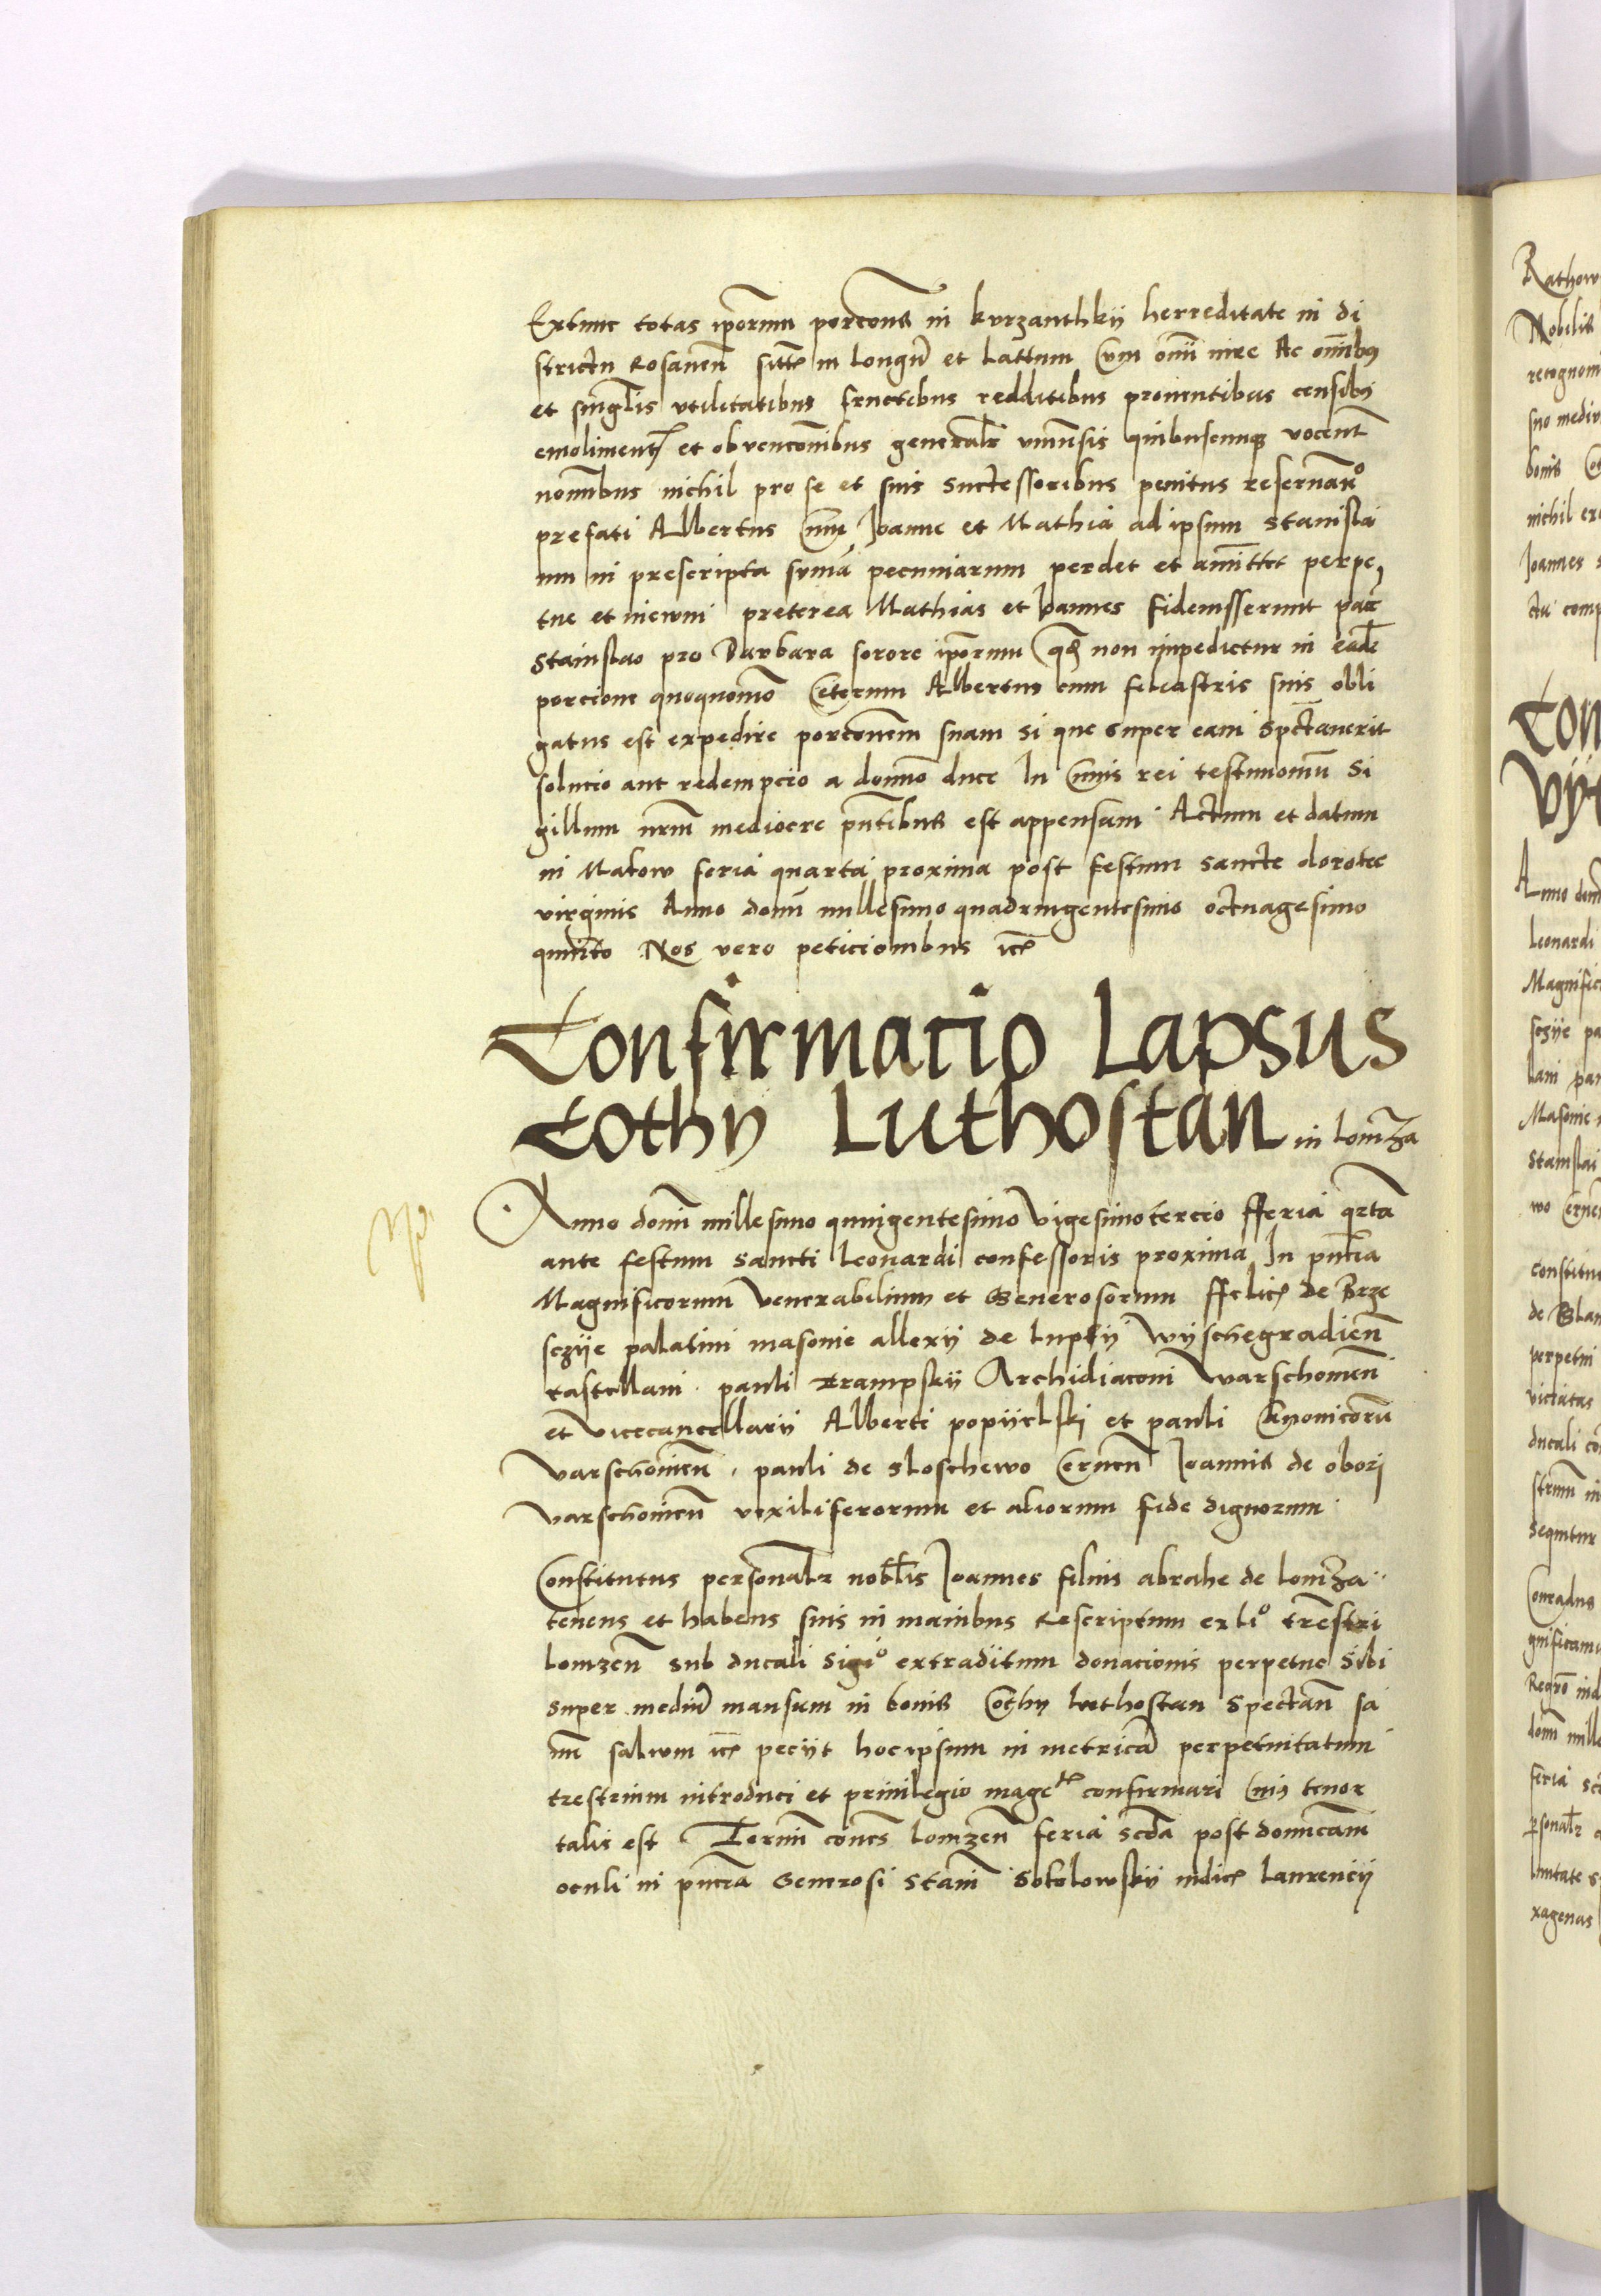 Extunc totas ip̄orum porcōnes in kurzanthkij herreditate in di
strictu Rosanen̄ sitt̄ in longū et lattum Cum om̄i iure Ac om̄ibus
et singl̄is utilitatibus fructibus redditibus proventibus censibus
emoliment̄ et obvencōnibus general̄r quibuscumque vocent̄
nom̄ibus nichil pro se et suis successoribus penitus reservan̄do
prefati Albertus cum Joanne et Mathia ad ipsum Stanisla
um in prescripta summa pecuniarum perdet et amittet perpe,
tue et inewum preterea Mathias et Joannes fideiusserunt pari
Stanislao pro Barbara sorore ip̄orum non impedietur in eade
porcione quoquomō Ceterum Albertus cum fratris suis obli
gatus est expedire porcōnem suam si que super eam spectaverit
solucio aut redempcio a domino duce In Cuius rei testimoniū Si
gillum nr̄m mediocre pn̄tibus est appensum Actum et datum
in Makow feria quarta proxima post festum sancte dorotee
virginis Anno domī millesimo quadringentesimo octuagesimo
quinto Nos vero peticionibus etc̄
Confirmatio Lapsus
Cothy Luthostan in lomza
Anno domī millesimo quingentesimo Vigesimotercio fferia qrta
ante festum sancti Leonardi confessoris proxima In pn̄cia
Magnificorum Venerabilium et Generosorum ffelic̄ de Brze
sczije palatini masovie allexij de lupkij Wijschegradien̄
castellani pauli Krampskij Archidiaconi Warschovien̄
et vicecancellarij Alberti popijelski et pauli Canonicorū
Varschovien̄ . pauli de sloschewo Cernen̄ Joannis de obori
Varschovien̄ vexiliferorum et aliorum fide dignorum
Constitutus personal̄r nobl̄is Joannes filius abrahe de lomza
tenens et habens suis in manibus Rescriptum ex lio tr̄estri
lomzen̄ sub ducali Sigio extraditum donacionis perpetue Sibi
super mediū mansum in bonis Cothy luthostan spectan̄ sa
salvum etc̄ peciit hoc ipsum in metricā perpetuitatum
trestrium introduci et privilegio confirmari Cuius tenor
talis est Termī lomzen̄ feria scda post domicam
oculi in pn̄cia Generosi Stani Sokolowskij iudic̄ laurencij